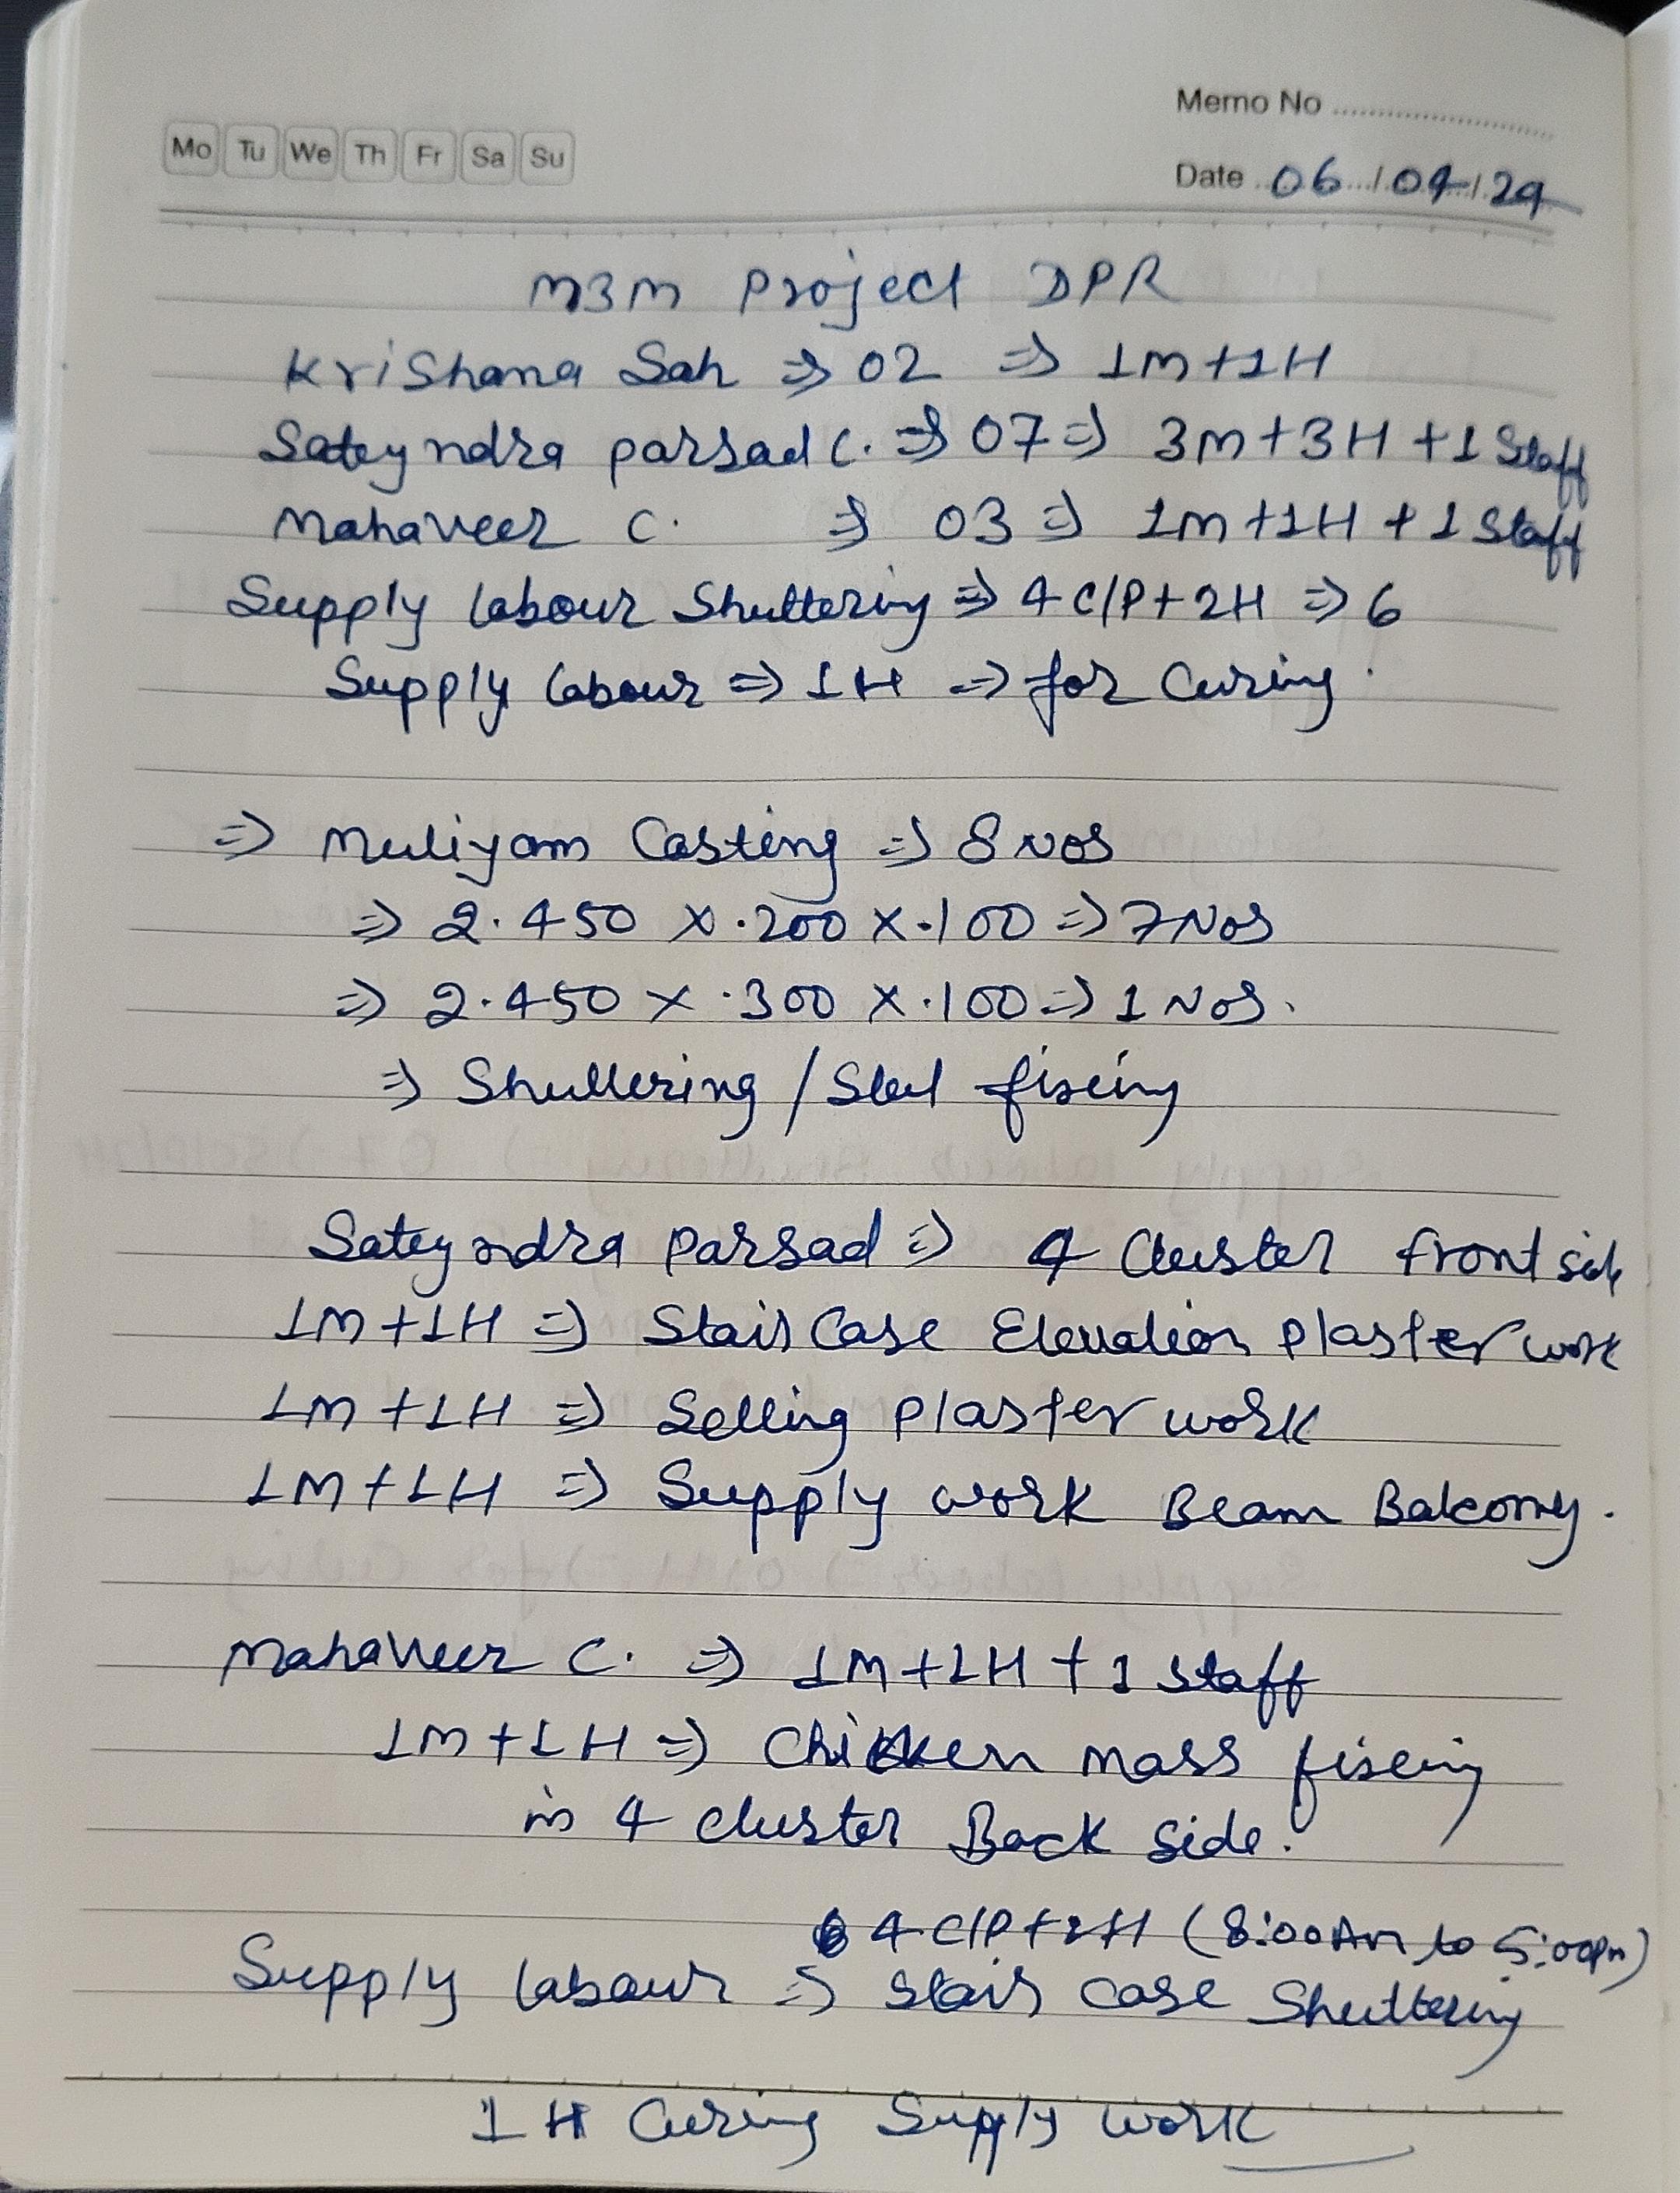 Memo No
Mo Tu We Th Fr Sa Su
Date 06/04/24
M3M Project DPR
Krishana Sah => 02 => 1M+1H
Sateyndra parsad C. => 07 => 3M+3H+1 Staff
Mahaveer C. => 03 => 1M+1H+1 Staff
Supply labour Shuttering => 4 C/P+2H => 6
Supply labour => 1H => for Curing.
=> Muliyam Casting => 8 Nos
=> 2.450 x .200 x .100 => 7 Nos
=> 2.450 x .300 x .100 => 1 Nos.
=> Shuttering / Steel fixing
Sateyndra Parsad => 4 Cluster front side
1M+1H => Stair Case Elevation plaster work
1M+1H => Selling plaster work
1M+1H => Supply work Beam Balcony.
Mahaveer C. => 1M+1H+1 staff
1M+1H => Chicken mass fixing
in 4 cluster Back side.
4 C/P+2H (8:00Am to 5:00pm)
Supply labour => stair case Shuttering
1H Curing Supply work